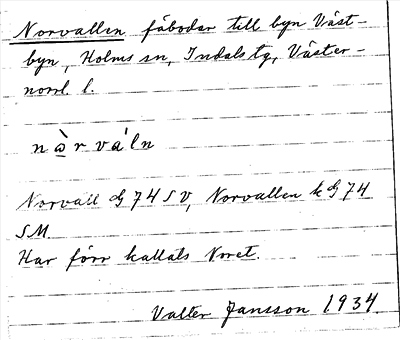 Norvallen fäbodar till byn Väst-
byn, Holms sn, Indals tg, Väster-
norrl. l.
nàrváln
Norvall G74SV, Norvallen k G74
SM
Har förr kallats Noret.
Valter Jansson 1934